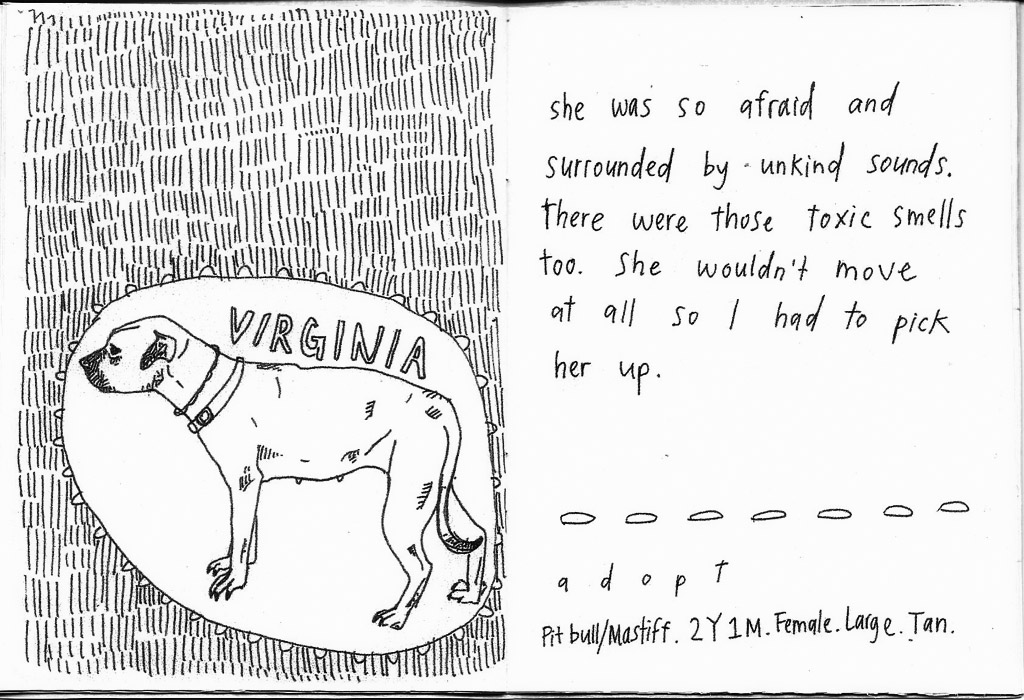 VIRGINIA
she was so afraid and
surrounded by unkind sounds.
There were those toxic smells
too. She wouldn't move
at all so I had to pick
her up.
adopt
Pit bull/Mastiff. 2Y 1M. Female. Large. Tan.